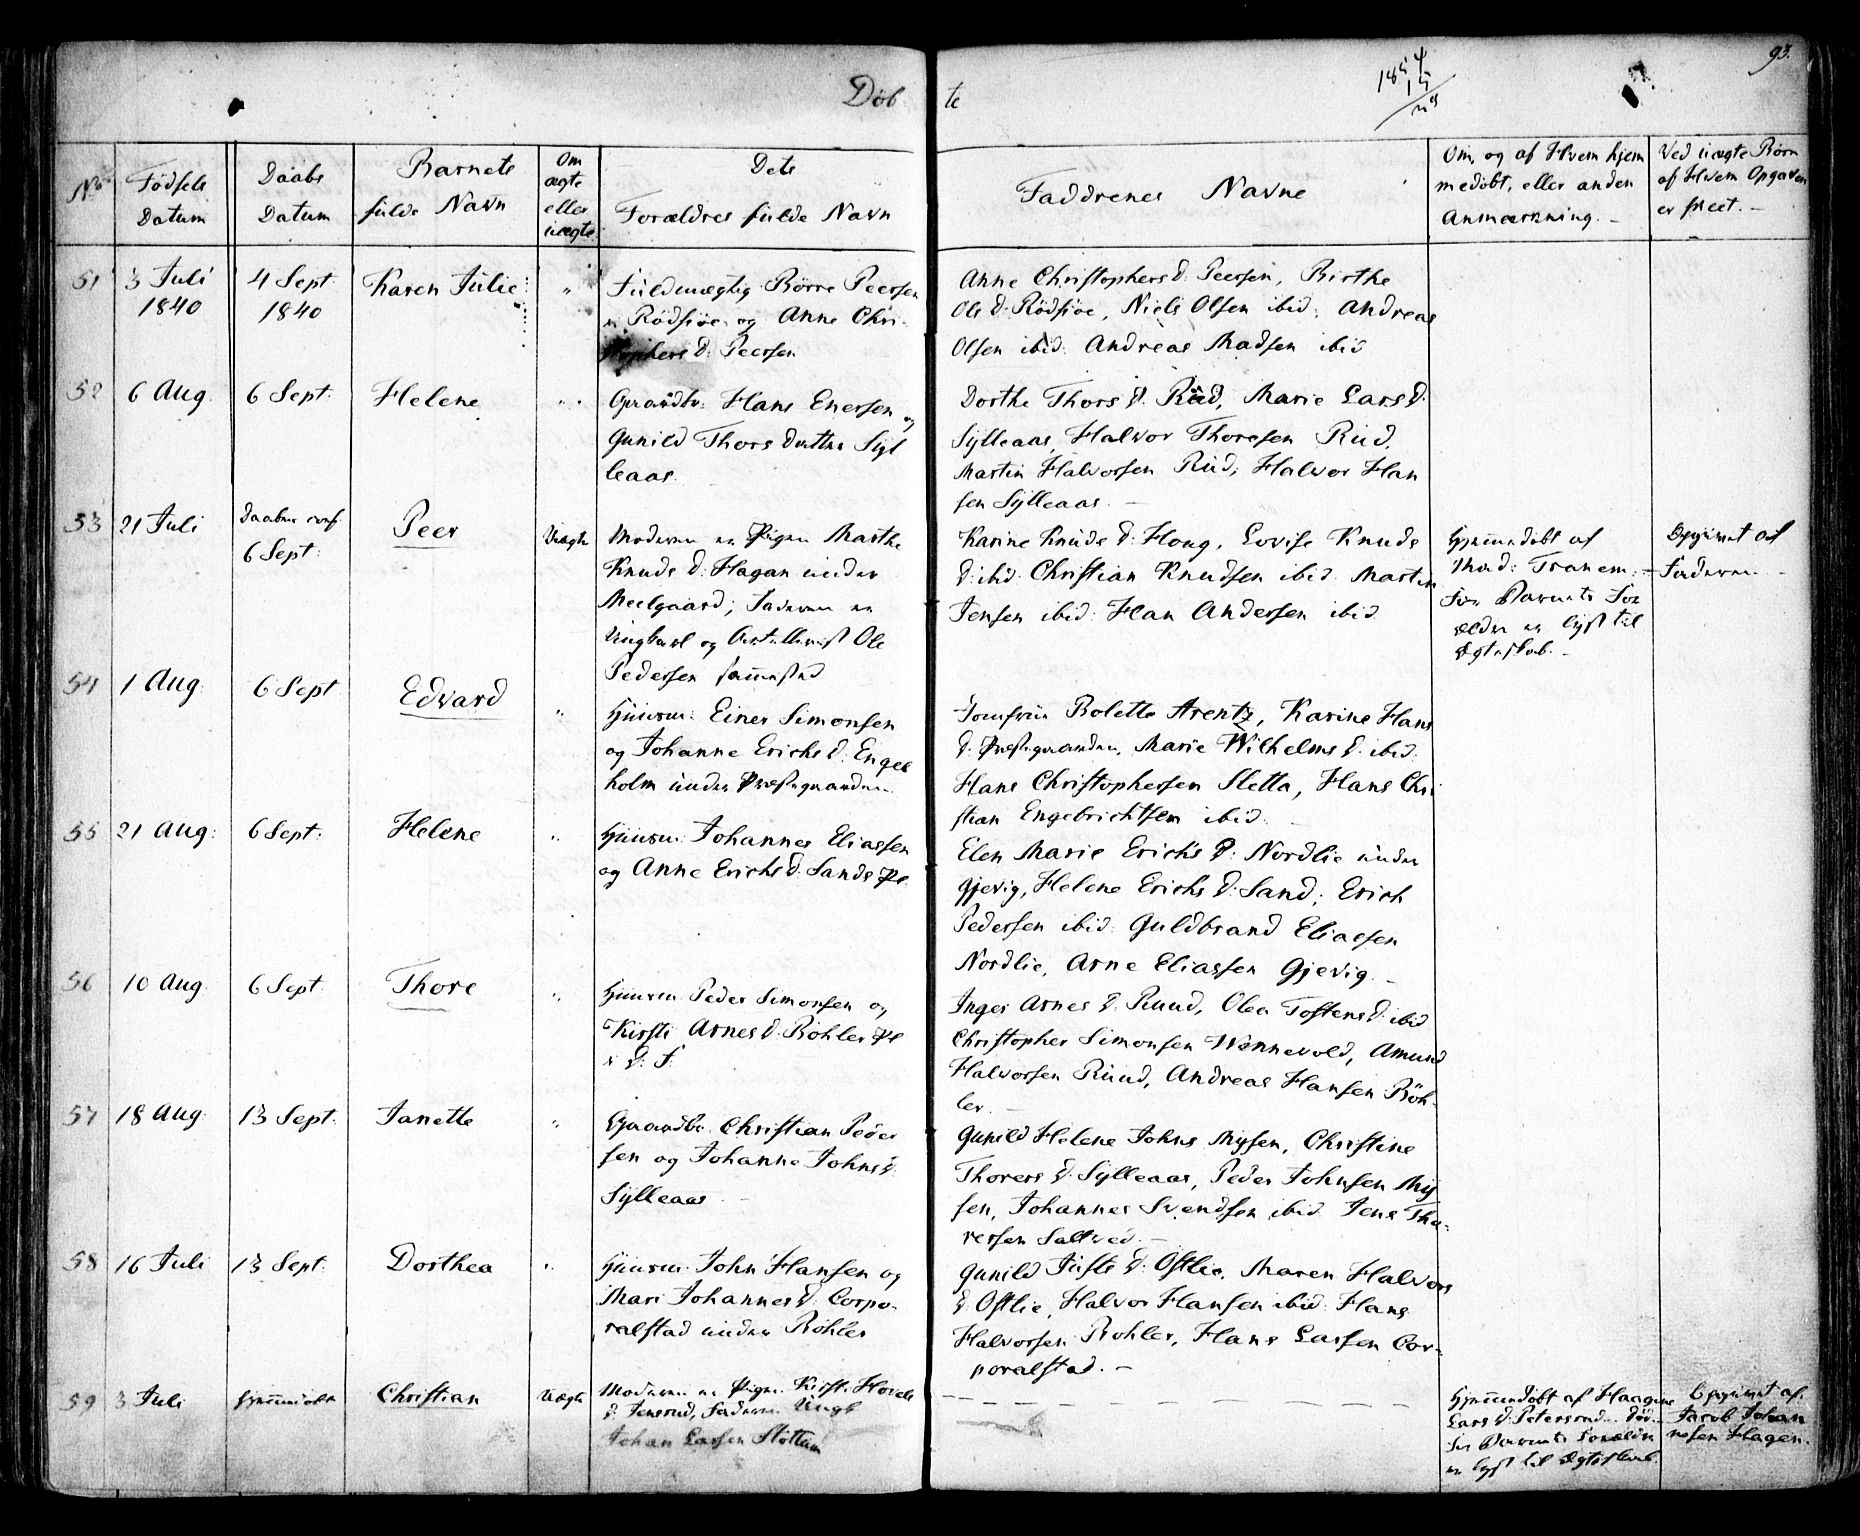 93.
Døb te
1854
15
No
Fødsels Datum
Daabs Datum
Barnets fulde Navn
Om ægte eller uægte
Dets Forældres fulde Navn
Faddrenes Navne
Om, og af Hvem hjem
medøbt, eller anden
Anmærkning. –
Ved uægte Børn
af Hvem Opgaven
er skeet. –
51 3 Juli 4 Sept Karen Julie " Fuldmægtig Børre Peersen
1840 1840
Rødsjøe og Anne Chri-
stophers D: Peersen
Anne Christophers D: Peersen, Birthe
Ols D: Rødsjøe, Niels Olsen ibid: Andreas
Olsen ibid: Andreas Madsen ibid
52 6 Aug. 6 Sept: Helene " Gaardbr: Hans Enersen og
Gunild Thors Datter Syl
leaas.
Dorthe Thors D. Rud, Marie Lars D.
Sylleaas, Halvor Thoresen Rud,
Martin Halvorsen Rud, Halvor Han
sen Sylleaas. –
53 21 Juli Daaben conf. 6 Sept: Peer Uægte Moderen er Pigen Marthe
Knuds D: Hagan under
Meelgaard; Faderen er
Ungkarl og Artillerist Ole
Pedersen sammested
Karine Knuds D: Houg, Lovise Knuds
D: ibid: Christian Knudsen ibid: Martin
Jensen ibid: Han Andersen ibid
Hjemmedøbt af
Thod: Tranem. –
For Barnets For
ældre er lyst til
Ægteskab. –
Opgivet af
Faderen –
54 1 Aug. 6 Sept Edvard " Huusm: Einer Simonsen
og Johanne Erichs D: Engel
holm under Præstegaarden
Jomfru Bolette Arentz, Karine Hans
D. Præstegaarden, Marie Wilhelms D. ibid.
Hans Christophersen Sletta, Hans Chri
stian Engebrichtsen ibid:
55 21 Aug: 6 Sept: Helene " Huusm: Johannes Eliassen
og Anne Erichs D: Sands Pl.
Elen Marie Erichs D: Nordlie under
Gjevig, Helene Erichs D: Sand, Erich
Pedersen ibid: Guldbrand Eliassen
Nordlie, Arne Eliassen Gjevig. –
56 10 Aug. 6 Sept. Thore " Huusm: Peder Simonsen og
Kirsti Arnes D. Bøhler Pl
Inger Arnes D. Ruud, Olea Tostens D. ibid
Christopher Simonsen Wennevold, Amund
Halvorsen Ruud, Andreas Hansen Bøh-
ler. –
57 18 Aug: 13 Sept: Janette " Gaardbr. Christian Peder
sen og Johanne Johns D.
Sylleaas –
Gunild Helene Johns Mysen, Christine
Thorers D. Sylleaas, Peder Johnsen My
sen, Johannes Svendsen ibid. Jens Tho-
rersen Saltved. –
58 16 Juli 13 Sept: Dorthea " Huusm: John Hansen og
Mari Johannes D: Corpo-
ralstad under Bøhler
Gunild Juste D: Ostlie, Maren Halvors
D. Ostlie, Halvor Hansen ibid: Hans
Halvorsen Bøhler, Hans Larsen Cor-
poralstad. –
59 3 Juli Hjemmedøbt Christian Uægte Moderen er Pigen Kirsti Hovels
D. Jensrud, Faderen Ungk
Johan Larsen
Hjemmedøbt af Haagine
Lars D. Petersrud. Død.
For Barnets Forældre
er lyst til Ægteskab.
Opgivet af
Jacob Johan
nesen Hagen.